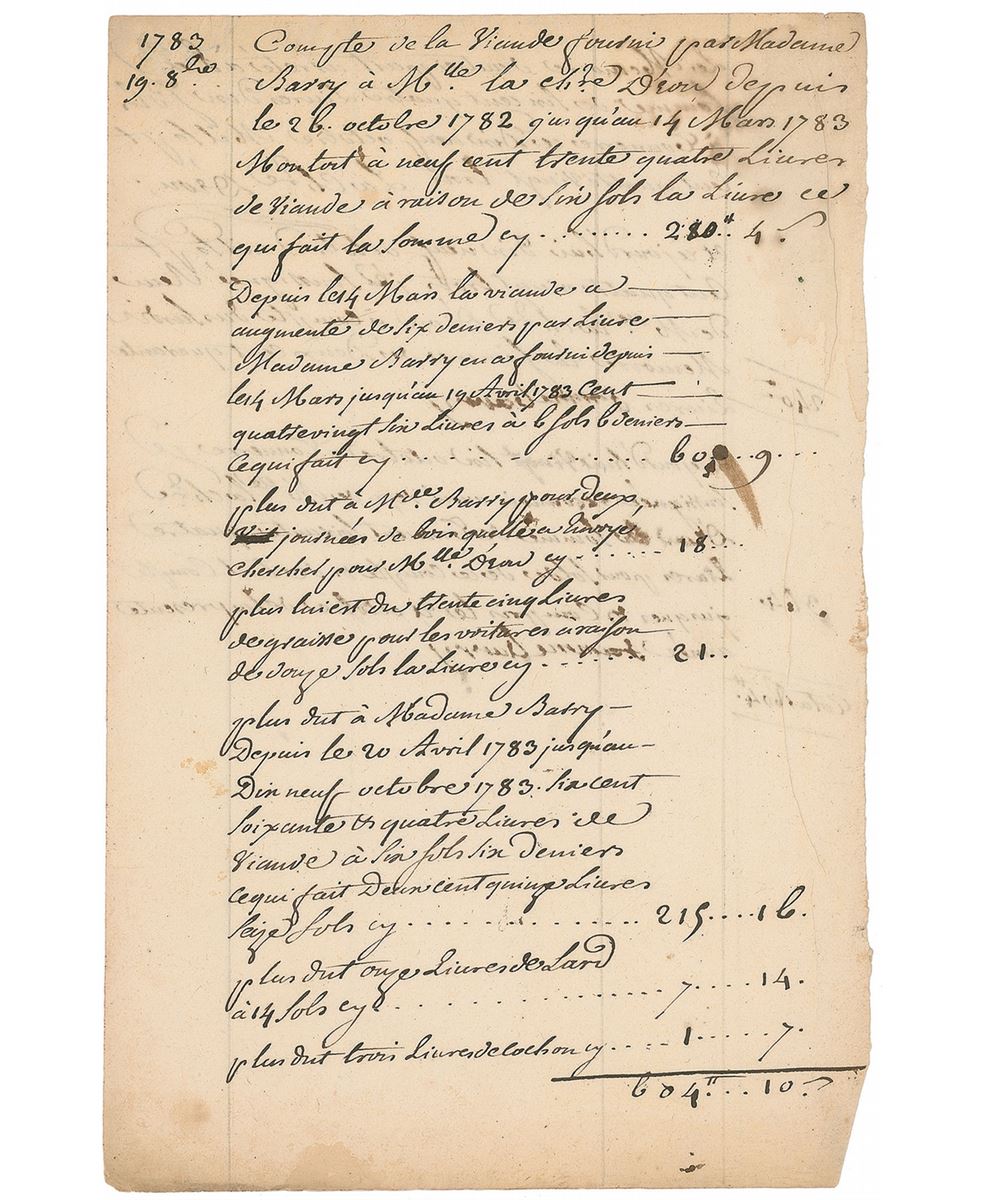 1783 Compte de la Viande fourni par Madame
19. 8bre Barry à Mlle la chre Déon depuis
le 26. octobre 1782 jusqu'au 14 Mars 1783
Montant à neuf cent trente quatre Livres
de Viande à raison de Six sols la Livre ce
qui fait la somme cy ......... 280# 4 s
Depuis le 14 Mars la viande a
augmenté de six deniers par Livre
Madame Barry en a fourni depuis
le 14 Mars jusqu'au 19 Avril 1783 Cent
quatrevingt six Livres à 6 sols 6 deniers
ce qui fait cy .............. 60 ... 9 ...
plus dut à Mde Barry pour deux
journées de bois quelle a Envoyé
chercher pour Mlle Déon cy ....... 18 ..
plus lui est du trente cinq Livres
de graisse pour les voitures a raison
de douze sols la Livre cy ....... 21 ..
plus dut à Madame Barry
Depuis le 20 Avril 1783 jusqu'au
Dix neuf octobre 1783. Six cent
soixante & quatre Livres de
Viande à Six sols six Deniers
ce qui fait Deux cent quinze Livres
Seize sols cy .................. 215 .... 16.
plus dut onze Livres de Lard
à 14 sols cy .................. 7 .... 14.
plus dut trois Livres de cochon cy .... 1 ..... 7.
604# ... 10 s